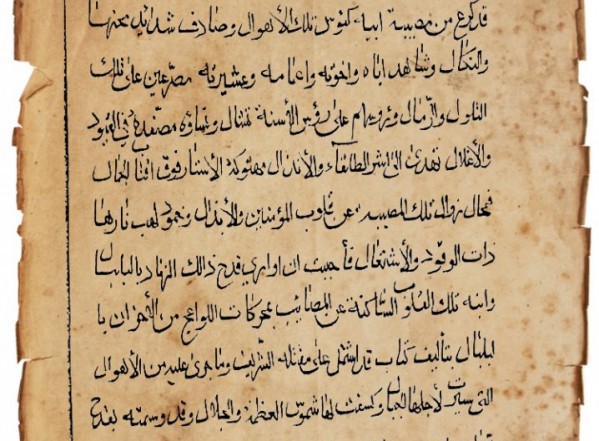 قد كرع من مصيبة ابيه كئوس تلك الأهوال وصادف شدائد محنها
والنكال وشاهد اباه واخوته واعمامه وعشيرته مصرعين على تلك
التلول والرمال ورءوسهم على رؤس الأسنة تشال ونساؤه مصفدة في القيود
والأغلال تهدى الى اشر الطلقاء والأنذال مهتوكة الأستار فوق اقتاب الجمال
فحال زوال تلك المصيبة عن قلوب المؤمنين والأنذال وخمود لهب نارها
ذات الوقود والأشتعال فأحببت ان اواري قدح ذالك الزناد بالبابال
وانبه تلك القلوب الساكنة عن المصائب بمحركات اللواعج من الأحزان با
لبلبال بتأليف كتاب قد اشتمل على مقتله الشريف وما جرى عليه من الأهوال
التي سيرت لأجلها الجبال وكسفت لها شموس العظمة والجلال وقد وسمته بقدح